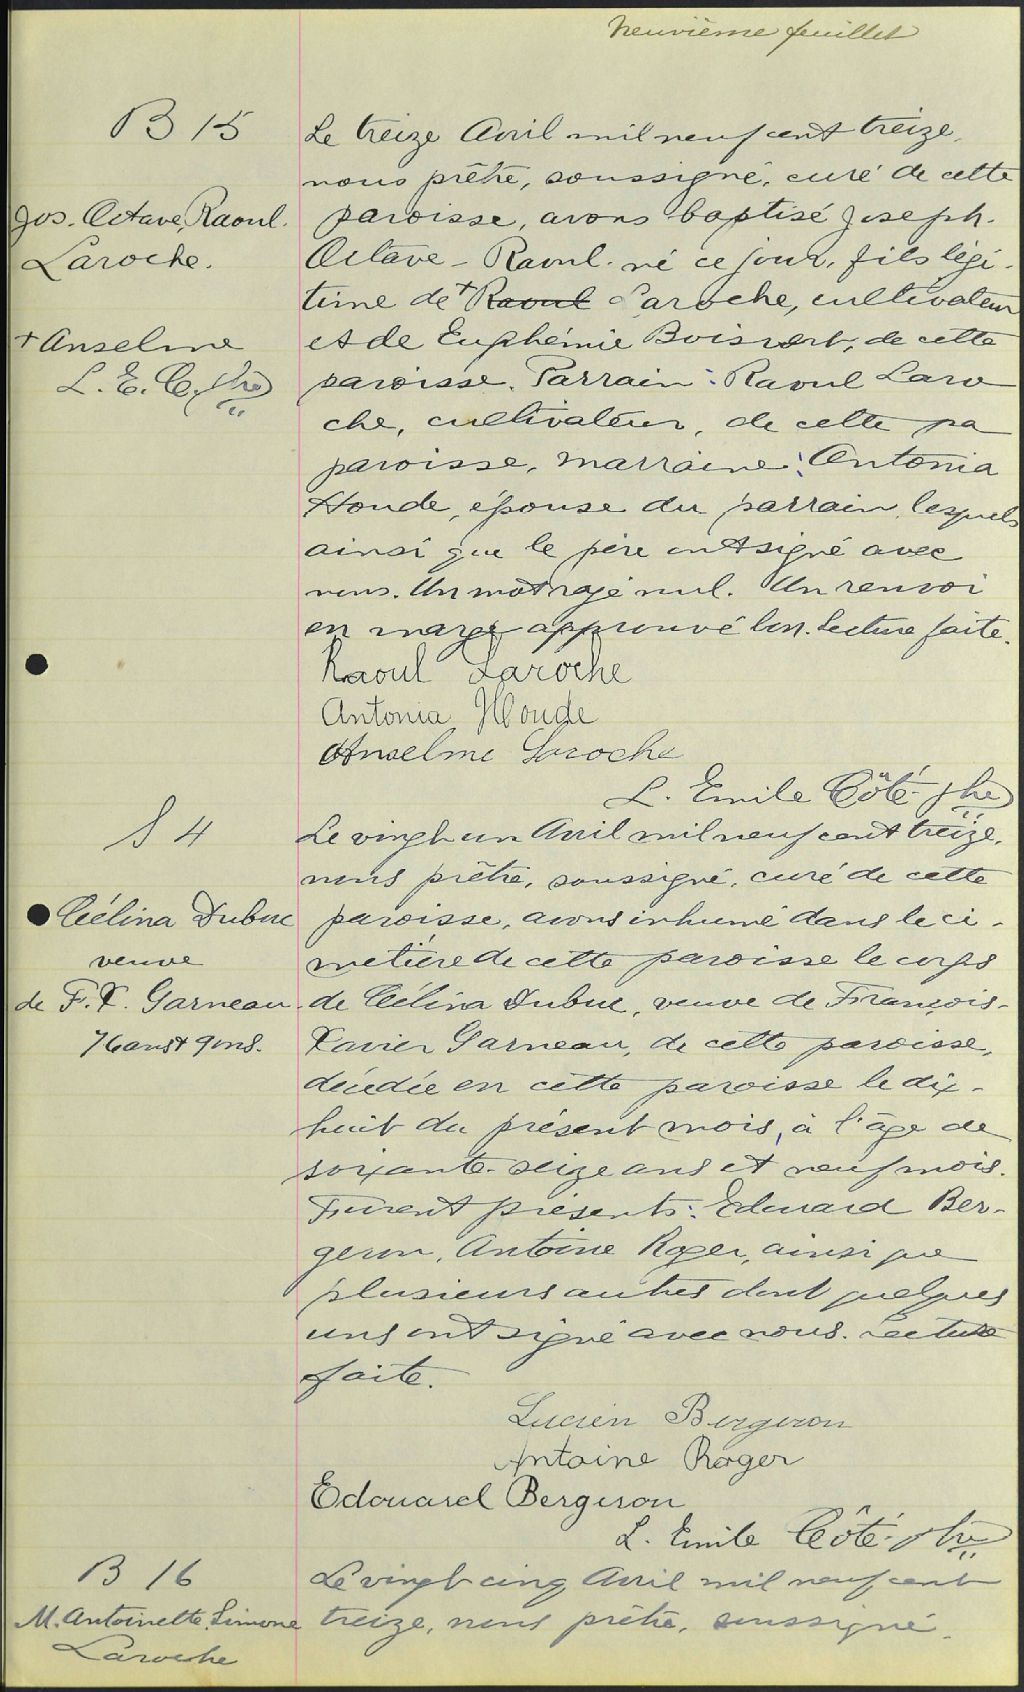 Neuvième feuillet
B 15
Jos. Octave, Raoul.
Laroche.
+ Anselme
L. E. C. ptre
Le treize Avril mil neuf cent treize,
nous prêtre, soussigné, curé de cette
paroisse, avons baptisé Joseph-
Octave - Raoul. né ce jour, fils légi-
time de + Raoul Laroche, cultivateur
et de Euphémie Boisvert, de cette
paroisse. Parrain: Raoul Laro
che, cultivateur, de cette pa
paroisse, marraine: Antonia
Houde, épouse du parrain, lesquels
ainsi que le père ont signé avec
nous. Un mot rayé nul. Un renvoi
en marge approuvé bon. Lecture faite.
Raoul Laroche
Antonia Houde
Anselme Laroche
L. Emile Côté ptre
S 4
Célina Dubuc
veuve
de F. X. Garneau
76 ans + 9 ms.
Le vingt un Avril mil neuf cent treize,
nous prêtre, soussigné, curé de cette
paroisse, avons inhumé dans le ci-
metière de cette paroisse le corps
de Célina Dubuc, veuve de François-
Xavier Garneau, de cette paroisse,
décédée en cette paroisse le dix-
huit du présent mois, à l'âge de
soixante-seize ans et neuf mois.
Furent présents: Edouard Ber-
geron, Antoine Roger, ainsi que
plusieurs autres dont quelques
uns ont signé avec nous. Lecture
faite.
Lucien Bergeron
Antoine Roger
Edouard Bergeron
L. Emile Côté ptre
B 16
M. Antoinette, Simone
Laroche
Le vingt cinq Avril mil neuf cent
treize, nous prêtre, soussigné.